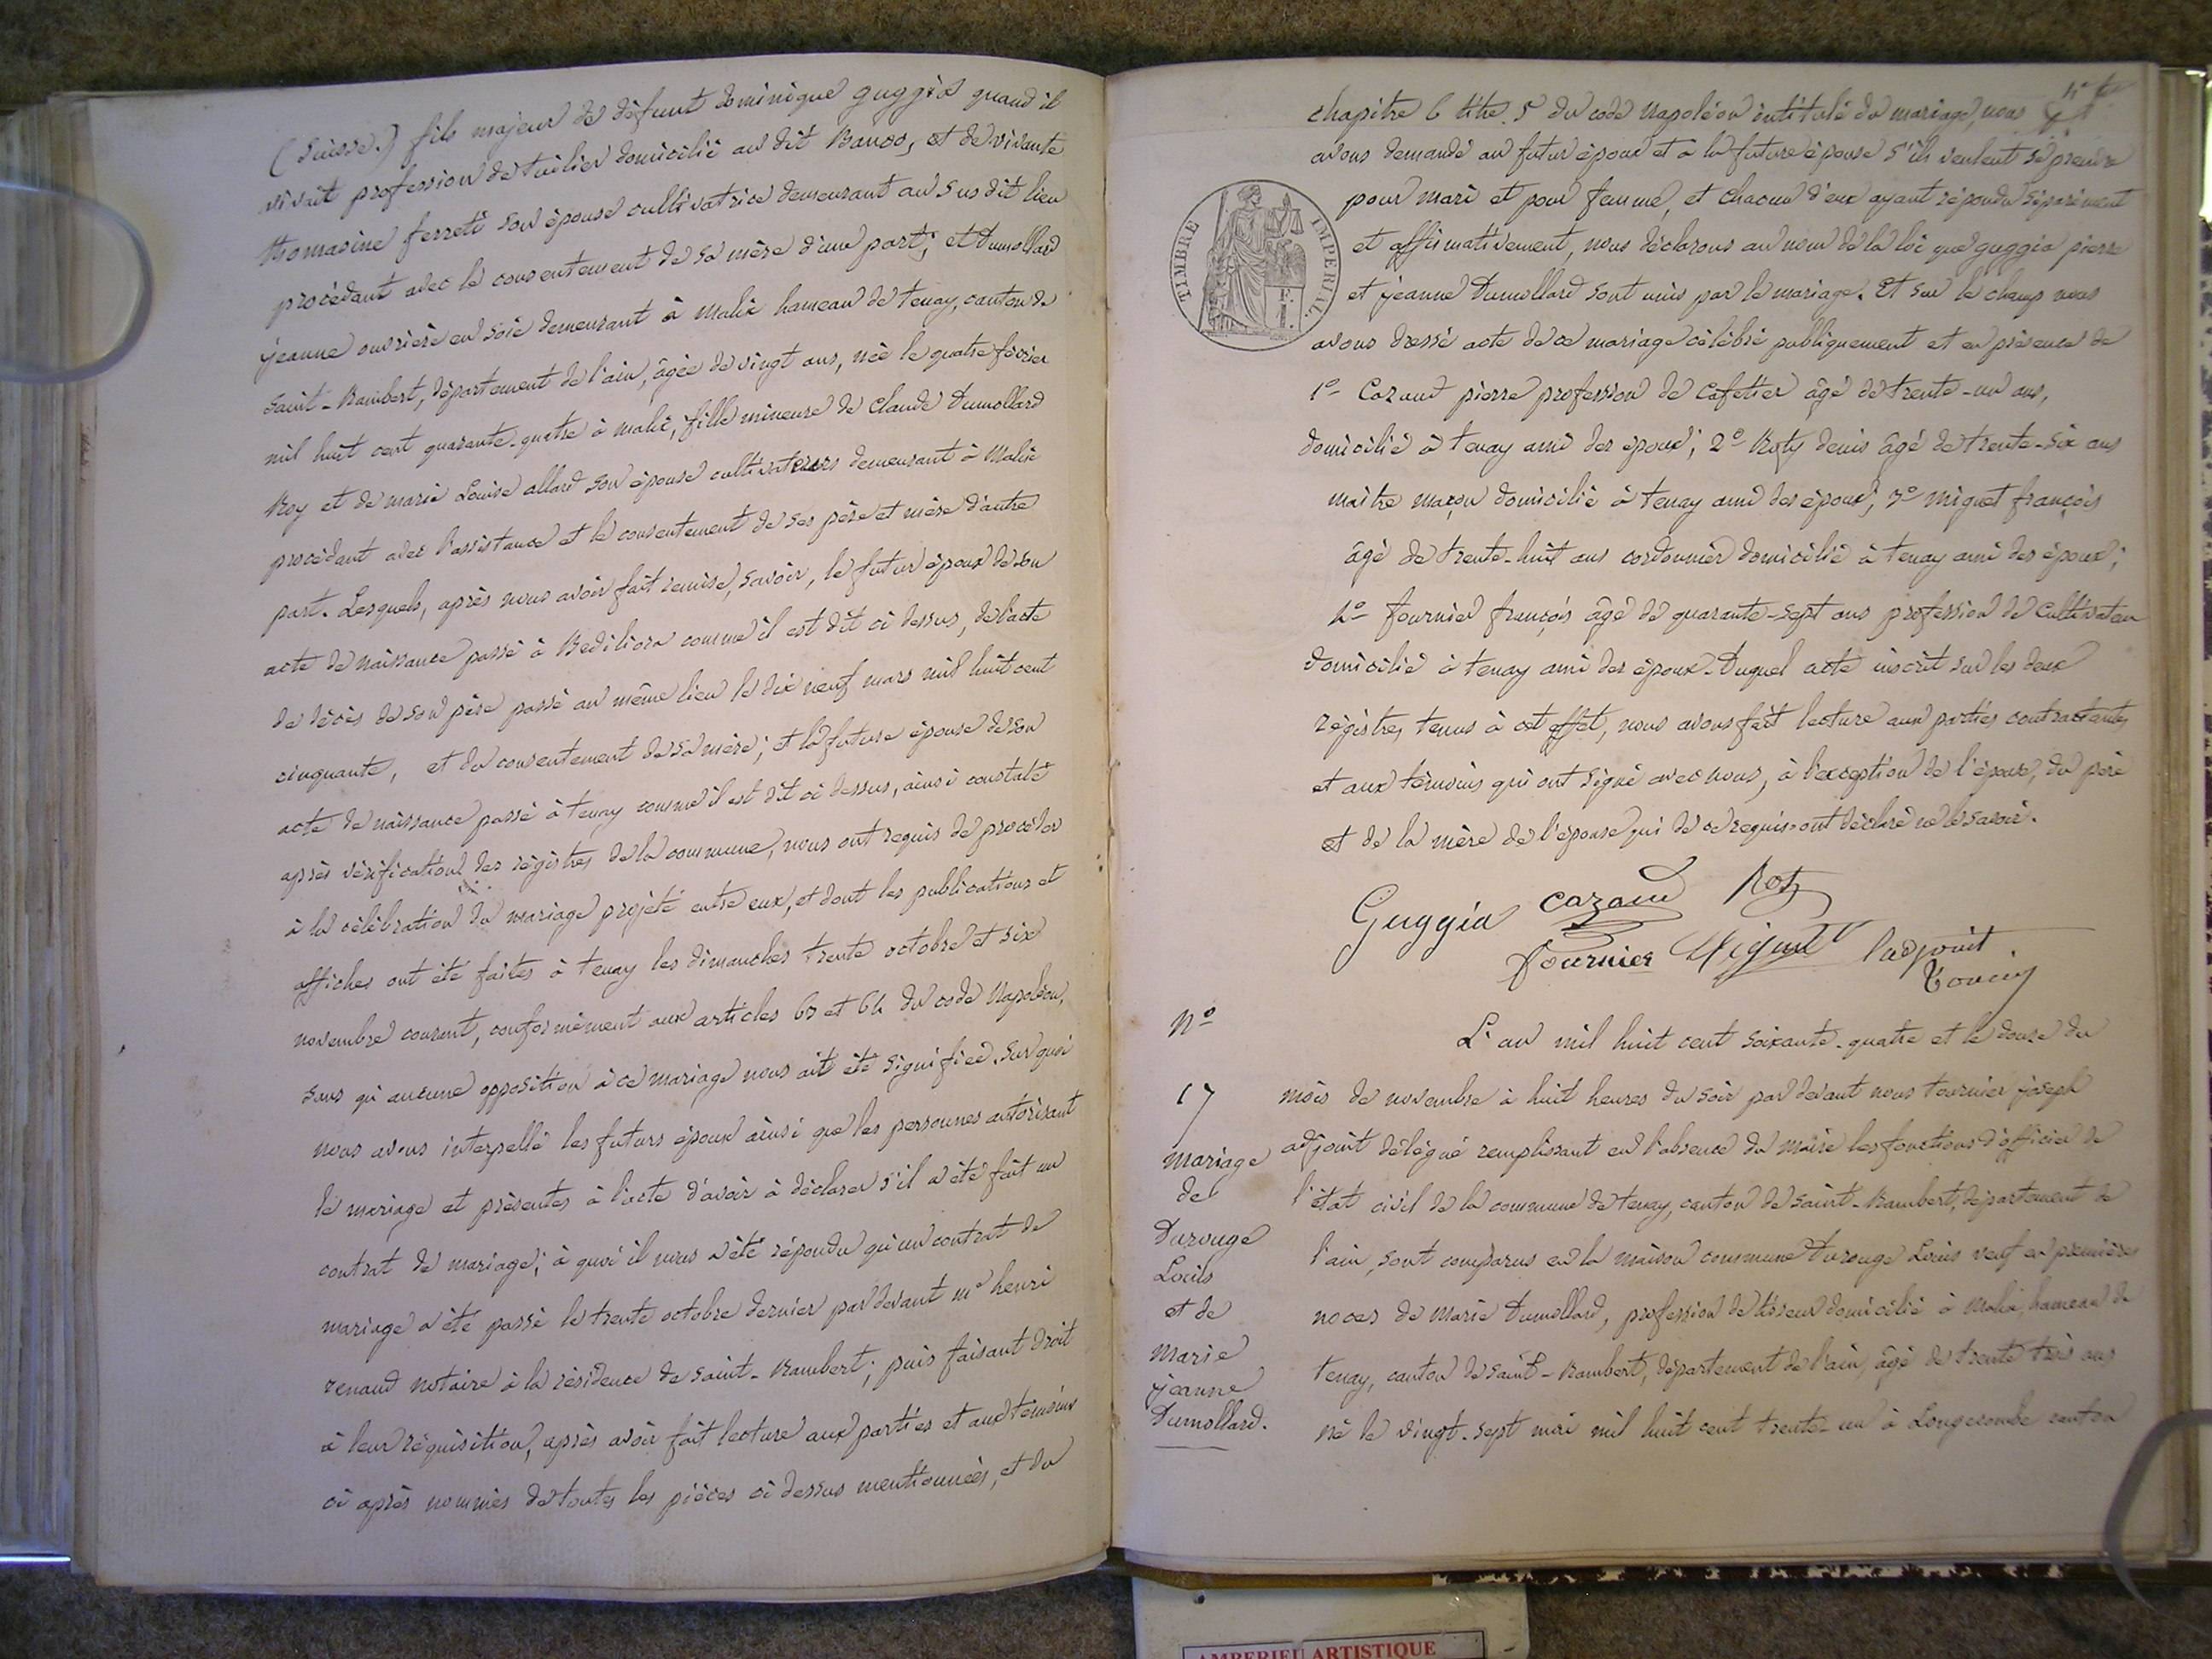 (Suisse.) fils majeur de défunt dominique guggia quand il
vivait profession de tuilier domicilié au dit Banco, et de vivante
thomasine ferreti son épouse cultivatrice demeurant au susdit lieu
procédant avec le consentement de sa mère d'une part; et Dumollard
jeanne ouvrière en soie demeurant à Malix hameau de tenay, canton de
saint-Rambert, département de l'ain, âgée de vingt ans, née le quatre février
mil huit cent quarante-quatre à malix, fille mineure de Claude Dumollard
Roy et de marie Louise allard son épouse cultivateurs demeurant à Malix
procédant avec l'assistance et le consentement de ses père et mère d'autre
part. Lesquels, après nous avoir fait remise, savoir, le futur époux de son
acte de naissance passé à Bediliora comme il est dit ci dessus, de l'acte
de décès de son père passé au même lieu le dix neuf mars mil huit cent
cinquante, et du consentement de sa mère; et la future épouse de son
acte de naissance passé à tenay comme il est dit ci dessus, ainsi constaté
après vérification des régistres de la commune, nous ont requis de procéder
à la célébration du mariage projeté entre eux, et dont les publications et
affiches ont été faites à tenay les dimanches trente octobre et six
novembre courant, conformément aux articles 63 et 64 du code Napoléon,
sans qu'aucune opposition à ce mariage nous ait été signifiée. Sur quoi
nous avons interpellé les futurs époux ainsi que les personnes autorisant
le mariage et présentes à l'acte d'avoir à déclarer s'il a été fait un
contrat de mariage; à quoi il nous a été répondu qu'un contrat de
mariage a été passé le trente octobre dernier par devant me henri
renaud notaire à la résidence de saint-Rambert; puis faisant droit
à leur réquisition, après avoir fait lecture aux parties et aux témoins
ci après nommés de toutes les pièces ci dessus mentionnées, et du
chapitre 6 titre 5 du code Napoléon intitulé du mariage, nous
avons demandé au futur époux et à la future épouse s'ils veulent se prendre
pour mari et pour femme, et chacun d'eux ayant répondu séparément
et affirmativement, nous déclarons au nom de la loi que guggia pierre
et jeanne Dumollard sont unis par le mariage. Et sur le champ nous
avons dressé acte de ce mariage célébré publiquement et en présence de
TIMBRE IMPERIAL.
1º Cazaud pierre profession de Cafetier âgé de trente-un ans,
domicilié à tenay ami des époux; 2º Roty denis âgé de trente-six ans
maître maçon domicilié à tenay ami des époux; 3º miguet françois
âgé de trente-huit ans cordonnier domicilié à tenay ami des époux;
4º fournier françois âgé de quarante-sept ans profession de Cultivateur
domicilié à tenay ami des époux. Duquel acte inscrit sur les deux
régistres tenus à cet effet, nous avons fait lecture aux parties contractantes
et aux témoins qui ont signé avec nous, à l'exception de l'épouse, du père
et de la mère de l'épouse qui de ce requis ont déclaré ne le savoir.
Guggia cazaud Roty
fournier Miguet l'adjoint
nº
17
mariage
de
Durouge
Louis
et de
Marie
jeanne
Dumollard.
L'an mil huit cent soixante-quatre et le douze du
mois de novembre à huit heures du soir par devant nous tournier joseph
adjoint délégué remplissant en l'absence du Maire les fonctions d'officier de
l'état civil de la commune de tenay, canton de saint-Rambert, département de
l'ain, sont comparus en la maison commune Durouge Louis veuf en premières
noces de Marie Dumollard, profession de tisseur domicilié à Malix, hameau de
tenay, canton de saint-Rambert, département de l'ain, âgé de trente trois ans
né le vingt-sept mai mil huit cent trente-un à Longecombe canton
AMBERIEU ARTISTIQUE